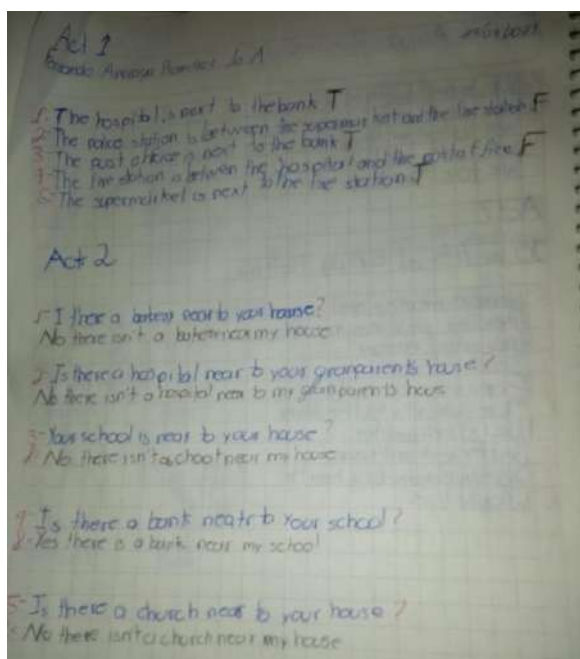 Act 1
1- The hospital is next to the bank T
2- The police station is between the supermarket and the fire station F
3- The post office is next to the bank T
4- The fire station is between the hospital and the F
5- The supermarket is next to the fire station T
Act 2
1- I there a near to your house?
No there isn't a near my house
2- Is there a hospital near to your granparents house?
No there isn't a hospital near to my granparents
3- Your school is near to your house?
No there isn't a school near my house
4- Is there a bank to your school?
Yes there is a bank near my school
5- Is there a church near to your house?
No there isn't a church near my house